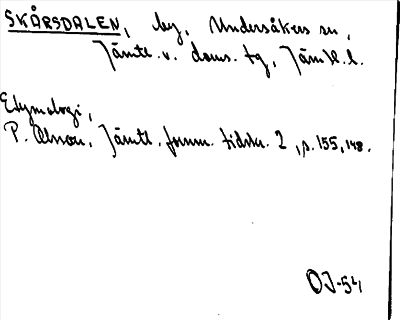 SKÅRSDALEN, by, Undersåkers sn,
Jämtl. v. doms. tg, Jämtl. l.
Etymologi,
P. Olsson, Jämtl. fornm. tidskr. 2, s. 155, 148.
OJ-54